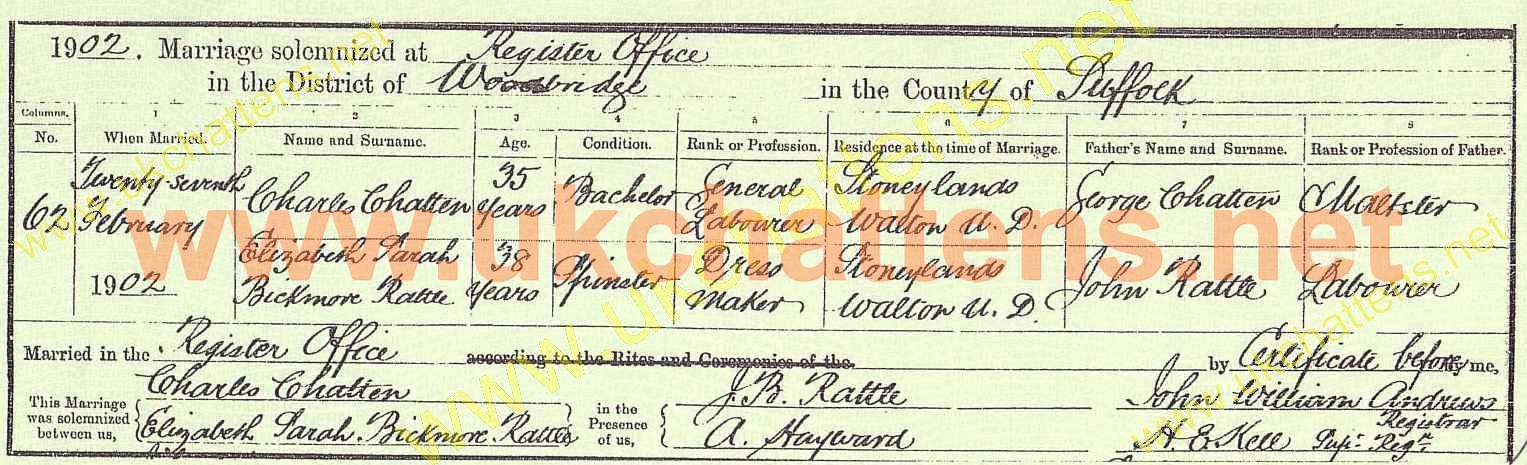 1902. Marriage solemnized at Register Office
in the District of Woodbridge in the County of Suffock
Columns. 1 2 3 4 5 6 7 8
No. When Married. Name and Surname. Age. Condition. Rank or Profession. Residence at the time of Marriage. Father's Name and Surname. Rank or Profession of Father.
62 Twenty-seventh February 1902 Charles Chatten 35 years Bachelor General Labourer Stoneylands Walton U. D. George Chatten Maltster
Elizabeth Sarah Bickmore Rattle 38 years Spinster Dress Maker Stoneylands Walton U. D. John Rattle Labourer
www.ukchattens.net
Married in the Register Office according to the Rites and Ceremonies of the by Certificate before by me,
This Marriage was solemnized between us, Charles Chatten in the Presence of us, J. B. Rattle John William Andrews Registrar
Elizabeth Sarah Bickmore Rattle A. Hayward H. E Kell Supr. Regr.
www.ukchattens.net
www.ukchattens.net
www.ukchattens.net
www.ukchattens.net